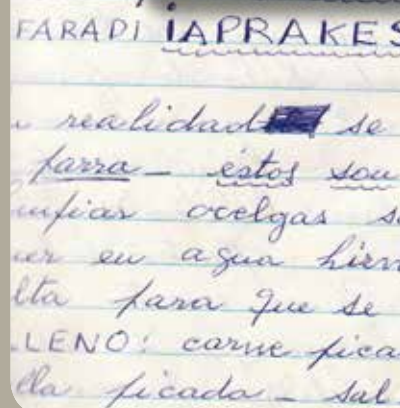 FARADI IAPRAKES
realidad se
parra - éstos son
mpiar acelgas s
er en agua hirv
lta para que se
LLENO: carne pica
lla picada - sal